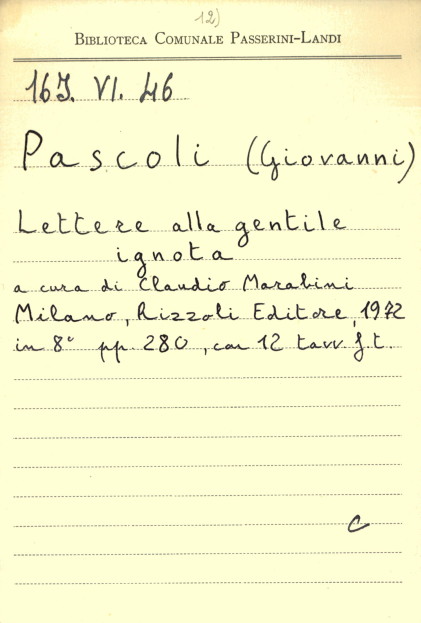 12)
BIBLIOTECA COMUNALE PASSERINI-LANDI
16J. VI. 46
Pascoli (Giovanni)
Lettere alla gentile
ignota
a cura di Claudio Marabini
Milano, Rizzoli Editore, 1972
in 8° pp. 280, con 12 tavv. f.t.
C